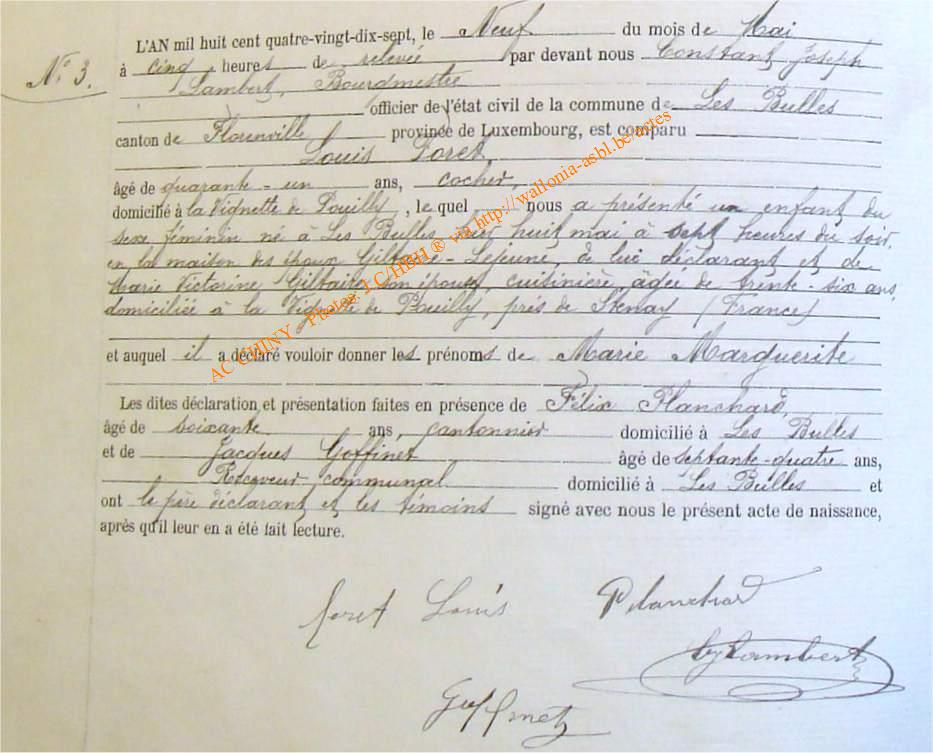 N° 3.
L'AN mil huit cent quatre-vingt-dix-sept, le Neuf du mois de Mai
à cinq heures de relevée par devant nous Constant Joseph
Lambert, Bourgmestre
officier de l'état civil de la commune de Les Bulles
canton de Florenville province de Luxembourg, est comparu
Louis Loret,
âgé de quarante-un ans, cocher,
domicilié à la Vignette de Pouilly, le quel nous a présenté un enfant du
sexe féminin né à Les Bulles, hier huit mai à sept heures du soir,
en la maison des époux Giltaire-Lejeune, de lui déclarant et de
Marie Victorine Giltaire son épouse, cuisinière, âgée de trente-six ans,
domiciliée à la Vignette de Pouilly, près de Stenay (France)
et auquel il a déclaré vouloir donner les prénoms de Marie Marguerite
Les dites déclaration et présentation faites en présence de Félix Planchard,
âgé de soixante ans, cantonnier domicilié à Les Bulles
et de Jacques Goffinet âgé de septante-quatre ans,
Receveur communal domicilié à Les Bulles et
ont le père déclarant et les témoins signé avec nous le présent acte de naissance,
après qu'il leur en a été fait lecture.
loret Louis Planchard
Lambert
Goffinet
AC CHINY - Photos J.C/HBH ® via http://wallonia-asbl.be/actes